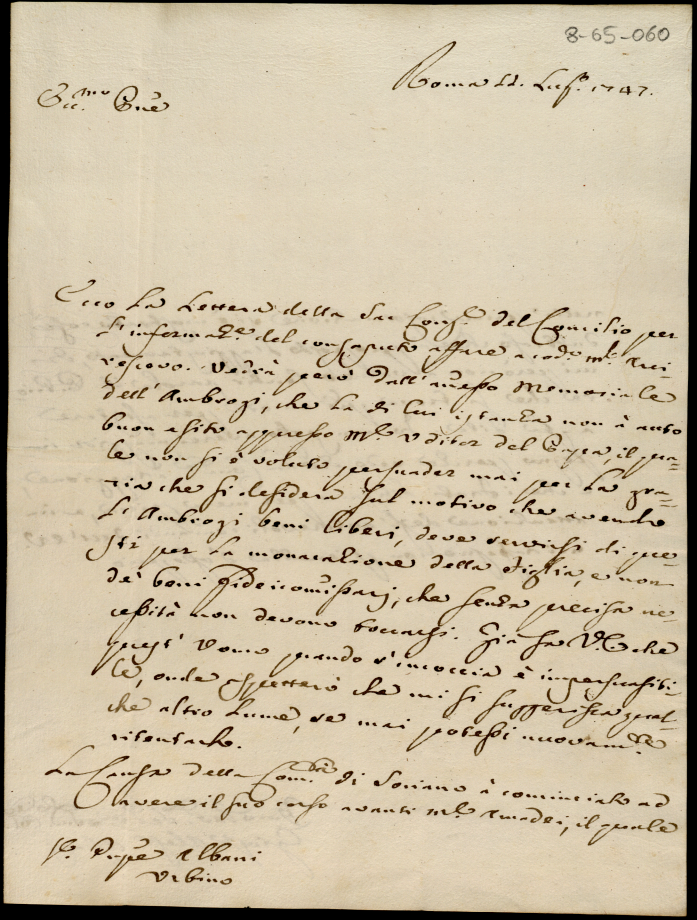 8-65-060
Roma 22. Lug.º 1747.
Ecc.mo Pñe
Ecco la lettera della Sac Cong.e del Concilio per
l'informat.e del consaputo affare a cod.o M.r Arci-
vescovo. Vedrà però dall'annesso Memoriale
dell'Ambrogi, che la di lui istanza non à auto
buon esito appresso M.r Uditor del Papa, il qua-
le non si è voluto persuader mai per la gra-
zia che si desidera sul motivo che avendo
l'Ambrogi beni liberi, deve servirsi di que-
sti per la monacazione della figlia, e non
de' beni fideicomissarj, che senza precisa ne-
cessità non devono toccarsi. Già sa V.E. che
quest'Uomo quando s'incoccia è impersuasibi-
le, onde aspetterò che mi si suggerisca qual-
che altro lume, se mai potessi nuovam.te
ritentarlo.
La Causa della Com.tà di Soriano à cominciato ad
avere il suo corso avanti M.r Amadei, il quale
S.r Prñpe Albani
Urbino